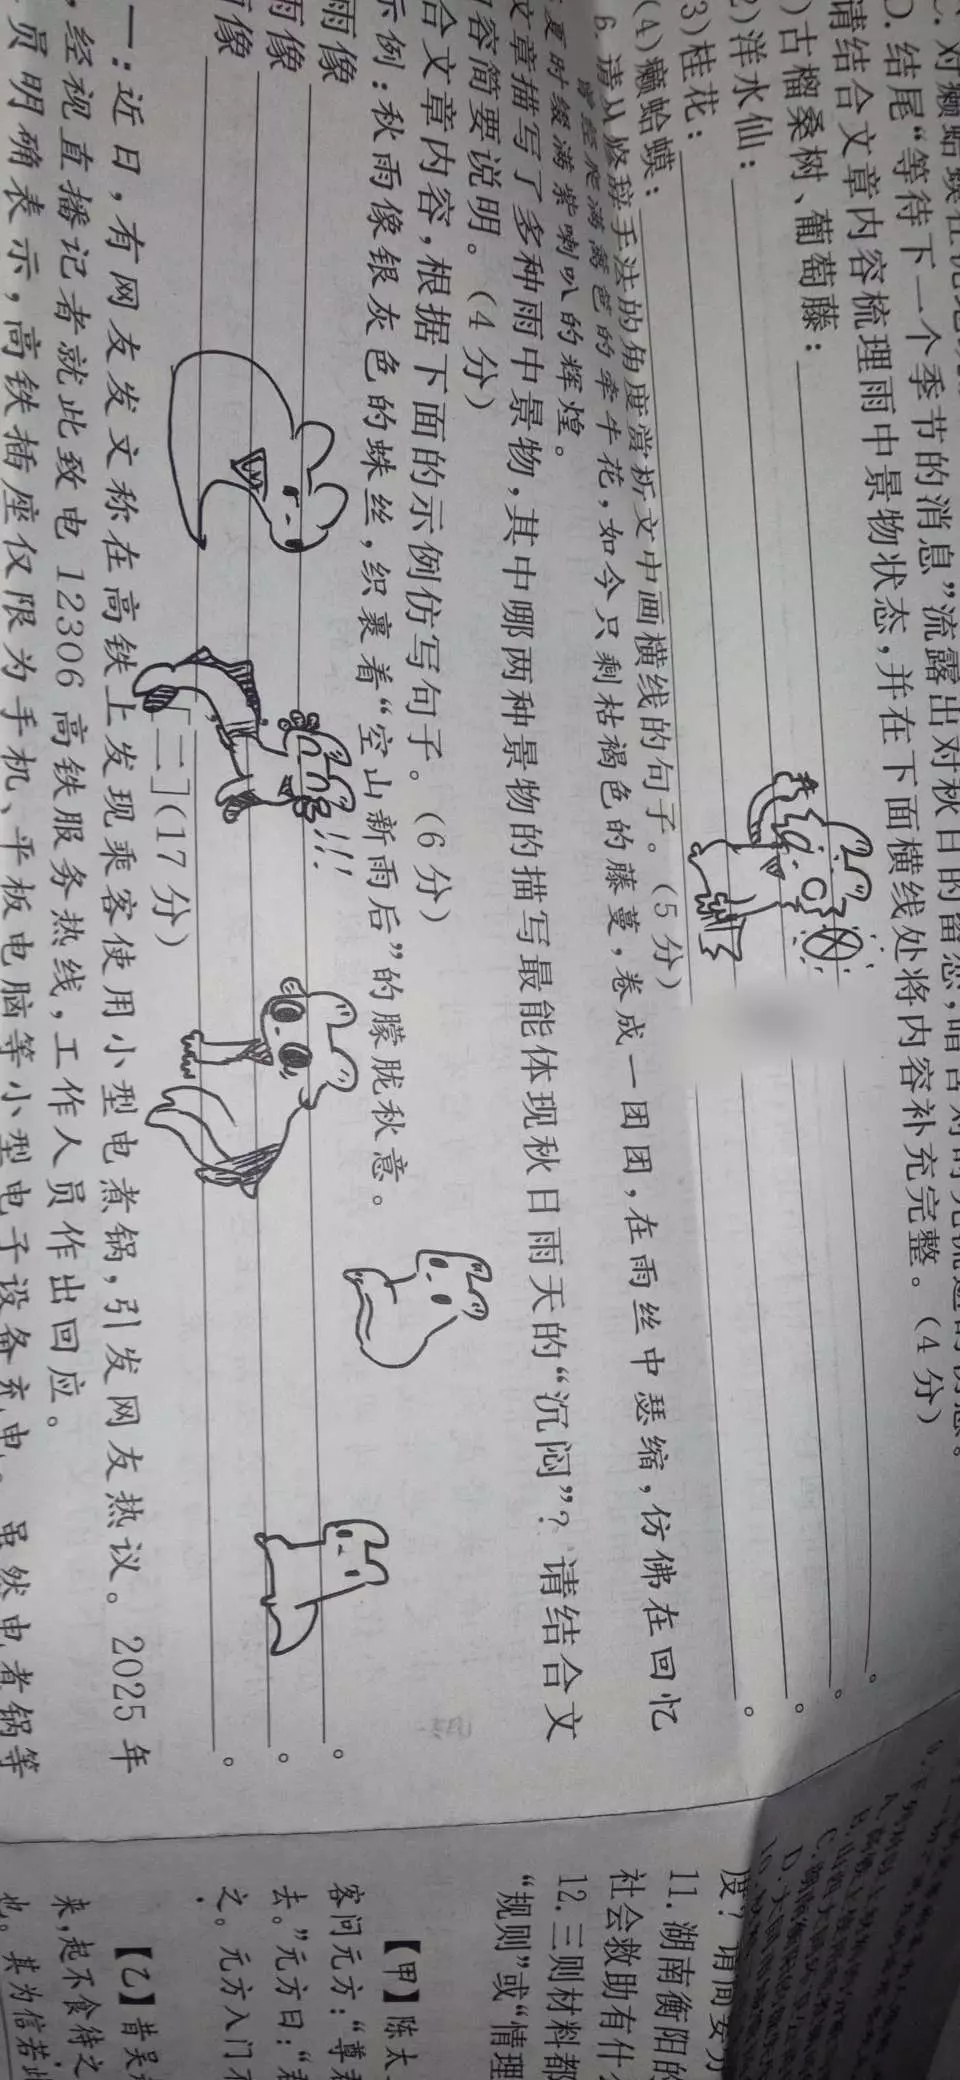 D. 结尾“等待下一个季节的消息”流露出对秋日的留恋,暗含对时光流逝的
请结合文章内容梳理雨中景物状态,并在下面横线处将内容补充完整。(4分)
)古榴桑树、葡萄藤:。
2)洋水仙:。
3)桂花:。
(4)癞蛤蟆:。
6. 请从修辞手法的角度赏析文中画横线的句子。(5分)
曾经爬满篱笆的牵牛花,如今只剩枯褐色的藤蔓,卷成一团团,在雨丝中瑟缩,仿佛在回忆
夏时缀满紫喇叭的辉煌。
文章描写了多种雨中景物,其中哪两种景物的描写最能体现秋日雨天的“沉闷”?请结合文
内容简要说明。(4分)
合文章内容,根据下面的示例仿写句子。(6分)
示例:秋雨像银灰色的蛛丝,织裹着“空山新雨后”的朦胧秋意。
雨像。
雨像。
雨像。
[二](17分)
一:近日,有网友发文称在高铁上发现乘客使用小型电煮锅,引发网友热议。2025年
,经视直播记者就此致电12306高铁服务热线,工作人员作出回应。
员明确表示,高铁插座仅限为手机、平板电脑等小型电子设备充电。虽然电煮锅等
11. 湖南衡阳的
社会救助有什
12. 三则材料都
“规则”或“情理
【甲】陈太
客问元方:“尊
去。”元方曰:“
之。元方入门不
【乙】昔吴
来,起不食待之
也。其为信若此